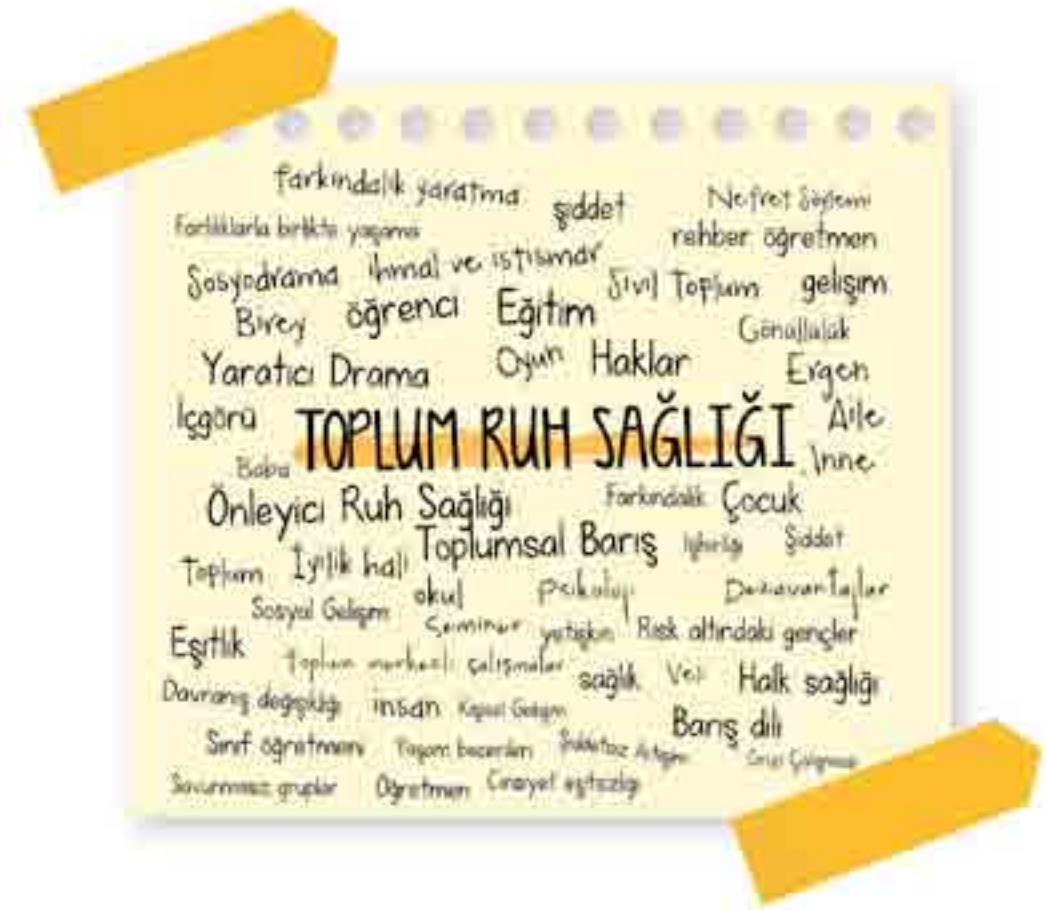 farkındalık yaratma şiddet Nefret Söylemi
Farklılıklarla birlikte yaşama rehber öğretmen
Sosyodrama ihmal ve istismar Sivil Toplum gelişim
Birey öğrenci Eğitim Gönüllülük
Yaratıcı Drama Oyun Haklar Ergen
İçgörü TOPLUM RUH SAĞLIĞI Aile
Baba Anne
Önleyici Ruh Sağlığı Farkındalık Çocuk
Toplum İyilik hali Toplumsal Barış İşbirliği Şiddet
Sosyal Gelişim okul Psikoloji Dezavantajlar
Eşitlik Seminer yetişkin Risk altındaki gençler
toplum merkezli çalışmalar sağlık Veli Halk sağlığı
Davranış değişikliği insan Kişisel Gelişim Barış dili
Sınıf öğretmeni Yaşam becerileri Şiddetsiz iletişim Grup Çalışması
Savunmasız gruplar Öğretmen Cinsiyet eşitsizliği